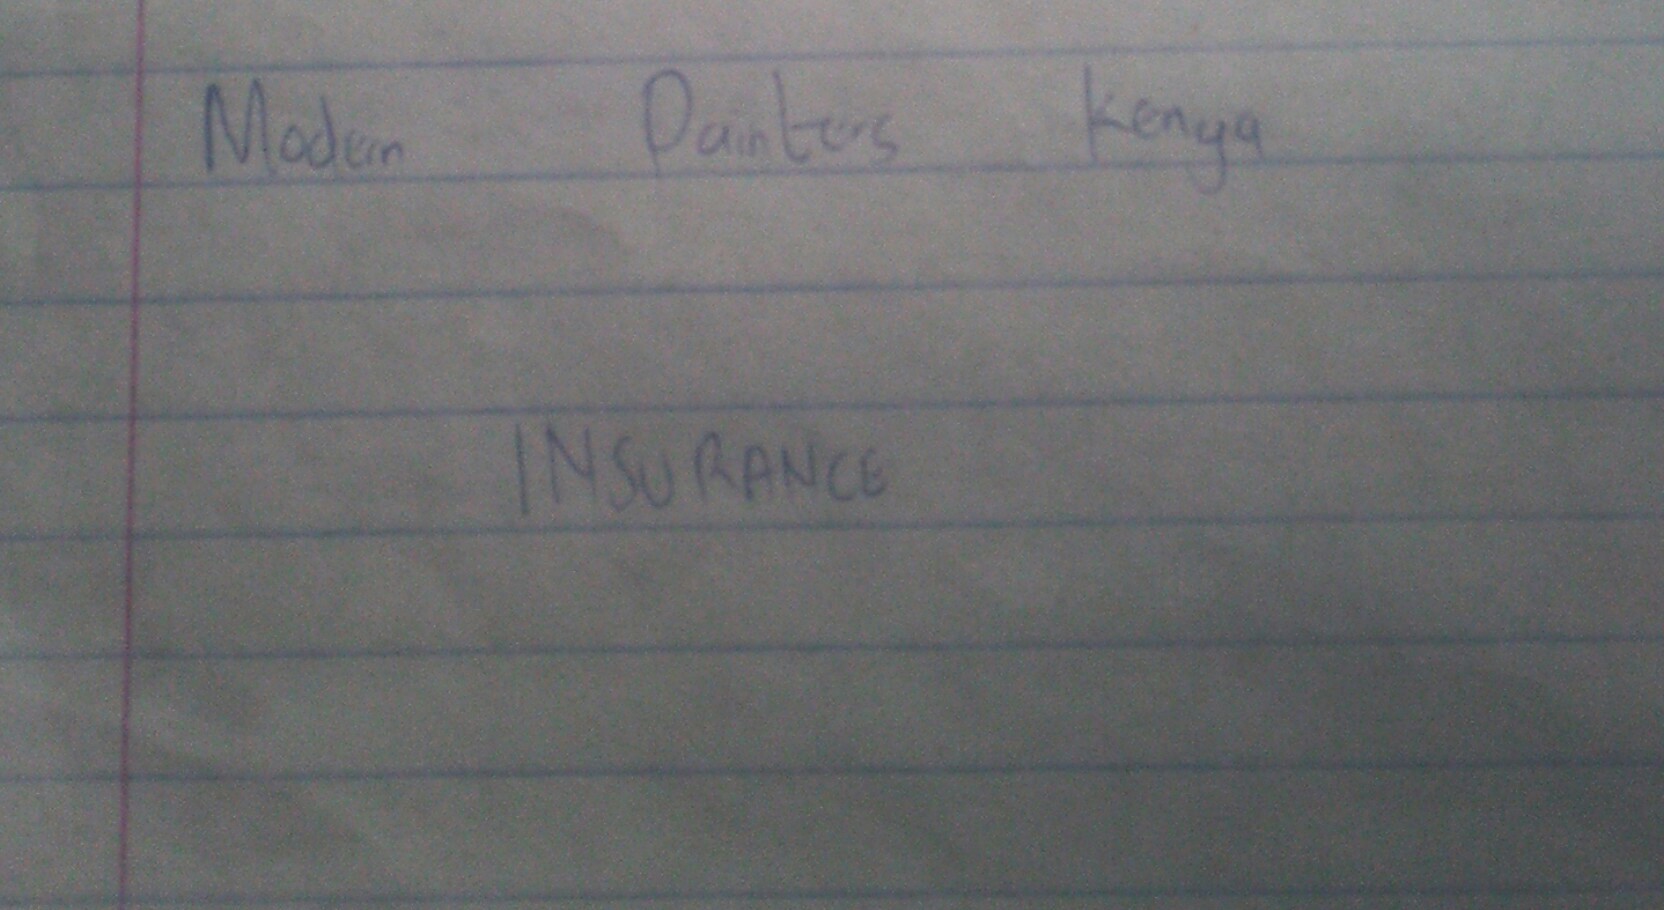 Modern Painters Kenya
INSURANCE